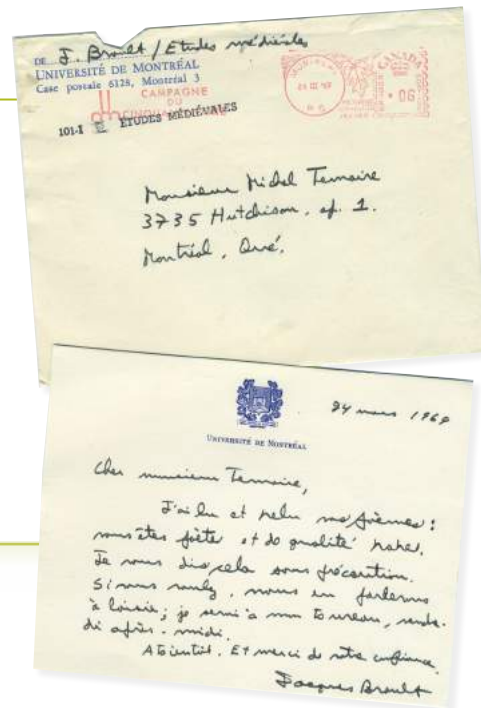 DE J. Brault / Etudes médiévales
UNIVERSITÉ DE MONTRÉAL
Case postale 6128, Montréal 3
CAMPAGNE
DU
CINQUANTENAIRE
101-I ÉTUDES MÉDIÉVALES
CANADA
06
Monsieur Michel Ternaire
3735 Hutchison, ap. 1.
Montréal, Qué.
UNIVERSITÉ DE MONTRÉAL
24 mars 1969
Cher monsieur Ternaire,
J'ai lu et relu vos poèmes :
vous êtes poète et de qualité rare.
Je vous dis cela sans précaution.
Si vous voulez, nous en parlerons
à loisir; je serai à mon bureau, vendre-
di après-midi.
A bientôt. Et merci de votre confiance.
Jacques Brault